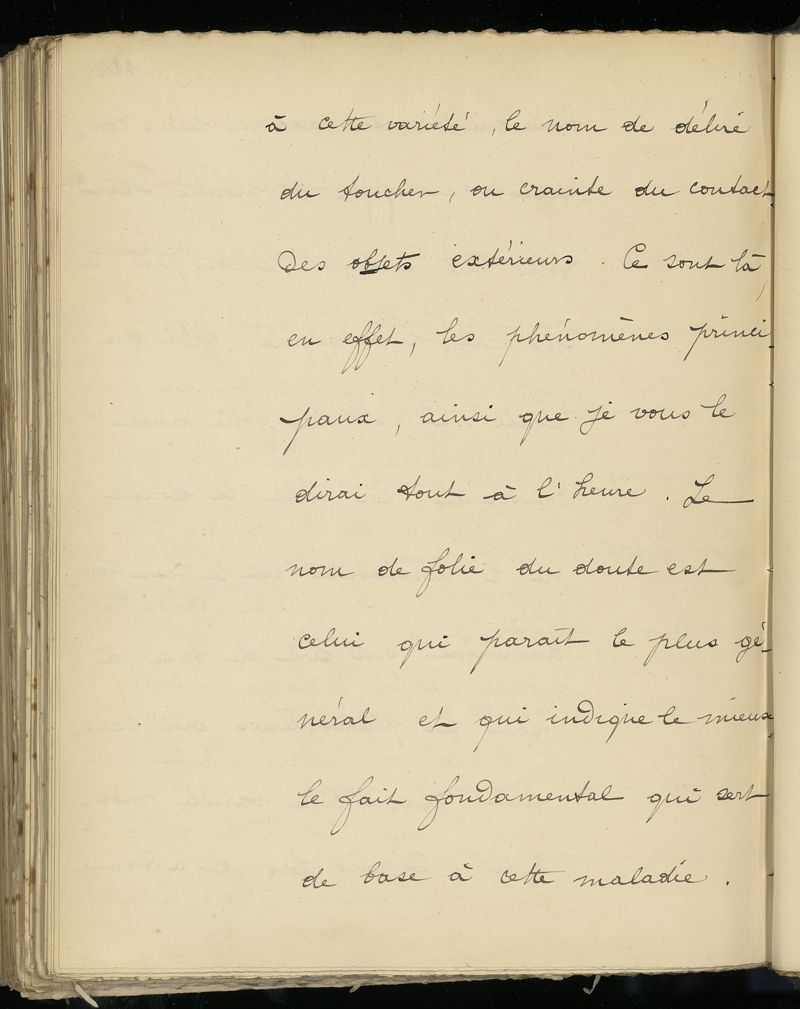 à cette variété, le nom de délire
du toucher, ou crainte du contact
des objets extérieurs. Ce sont là,
en effet, les phénomènes princi-
paux, ainsi que je vous le
dirai tout à l'heure. Le
nom de folie du doute est
celui qui paraît le plus gé-
néral et qui indique le mieux
le fait fondamental qui sert
de base à cette maladie.